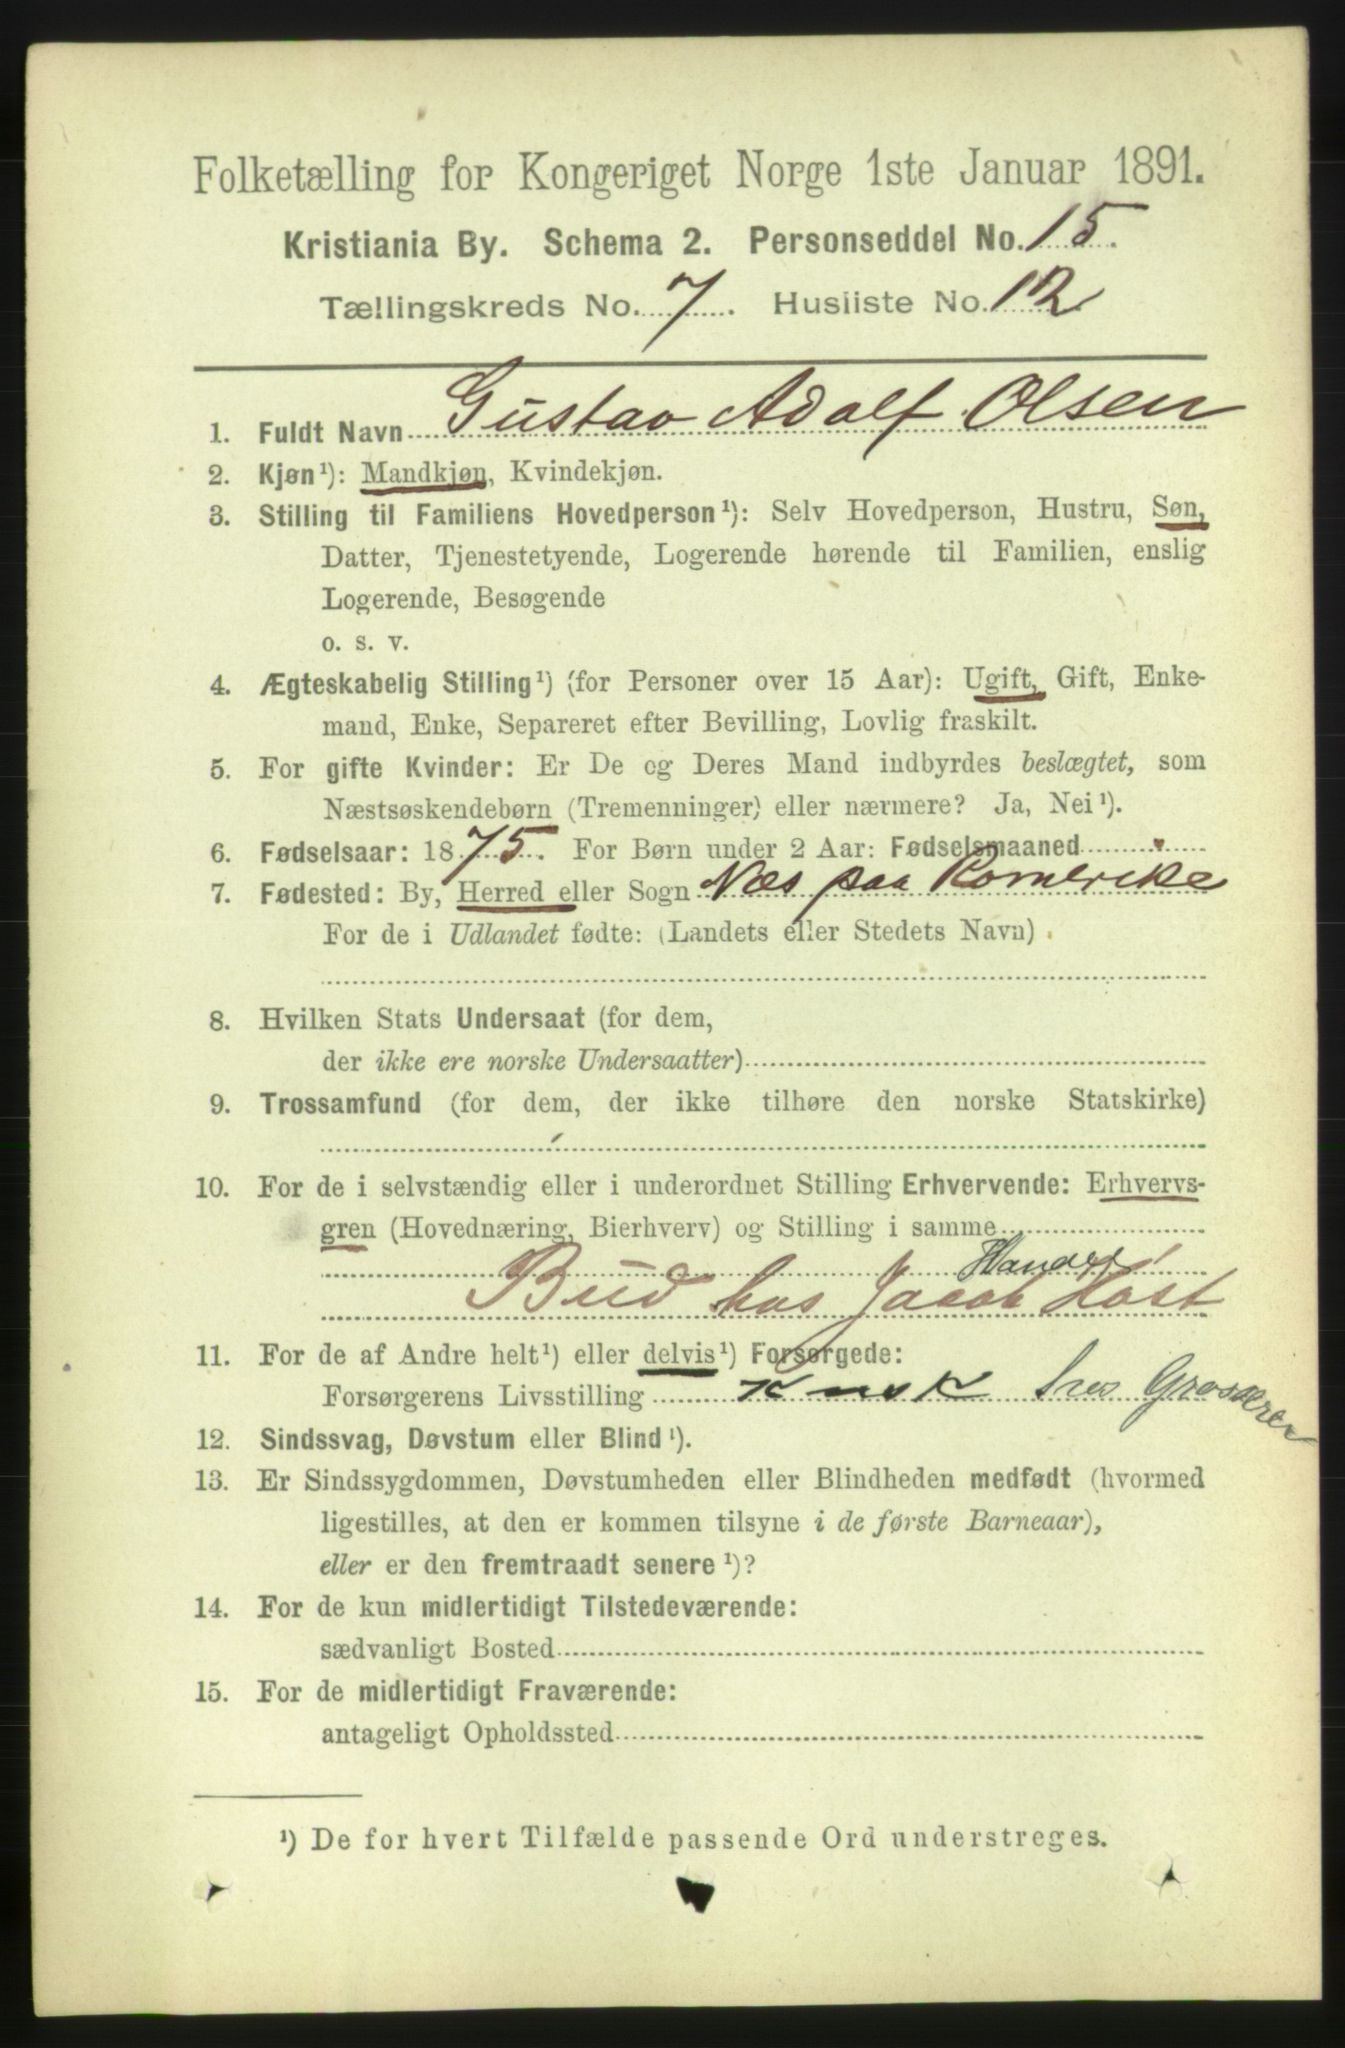 Folketælling for Kongeriget Norge 1ste Januar 1891.
Kristiania By. Schema 2. Personseddel No. 15.
Tællingskreds No. 7. Husliste No. 12
1. Fuldt Navn Gustav Adolf Olsen
2. Kjøn¹): Mandkjøn, Kvindekjøn.
3. Stilling til Familiens Hovedperson¹): Selv Hovedperson, Hustru, Søn,
Datter, Tjenestetyende, Logerende hørende til Familien, enslig
Logerende, Besøgende
o. s. v.
4. Ægteskabelig Stilling¹) (for Personer over 15 Aar): Ugift, Gift, Enke-
mand, Enke, Separeret efter Bevilling, Lovlig fraskilt.
5. For gifte Kvinder: Er De og Deres Mand indbyrdes beslægtet, som
Næstsøskendebørn (Tremenninger) eller nærmere? Ja, Nei¹).
6. Fødselsaar: 1875. For Børn under 2 Aar: Fødselsmaaned
7. Fødested: By, Herred eller Sogn Næs paa Romerike
For de i Udlandet fødte: (Landets eller Stedets Navn)
8. Hvilken Stats Undersaat (for dem,
der ikke ere norske Undersaatter)
9. Trossamfund (for dem, der ikke tilhøre den norske Statskirke)
10. For de i selvstændig eller i underordnet Stilling Erhvervende: Erhvervs-
gren (Hovednæring, Bierhverv) og Stilling i samme
Bud hos Jacob Høst
11. For de af Andre helt¹) eller delvis¹) Forsørgede:
Forsørgerens Livsstilling Kusk hos Grosserer
12. Sindssvag, Døvstum eller Blind¹).
13. Er Sindssygdommen, Døvstumheden eller Blindheden medfødt (hvormed
ligestilles, at den er kommen tilsyne i de første Barneaar),
eller er den fremtraadt senere¹)?
14. For de kun midlertidigt Tilstedeværende:
sædvanligt Bosted
15. For de midlertidigt Fraværende:
antageligt Opholdssted
¹) De for hvert Tilfælde passende Ord understreges.